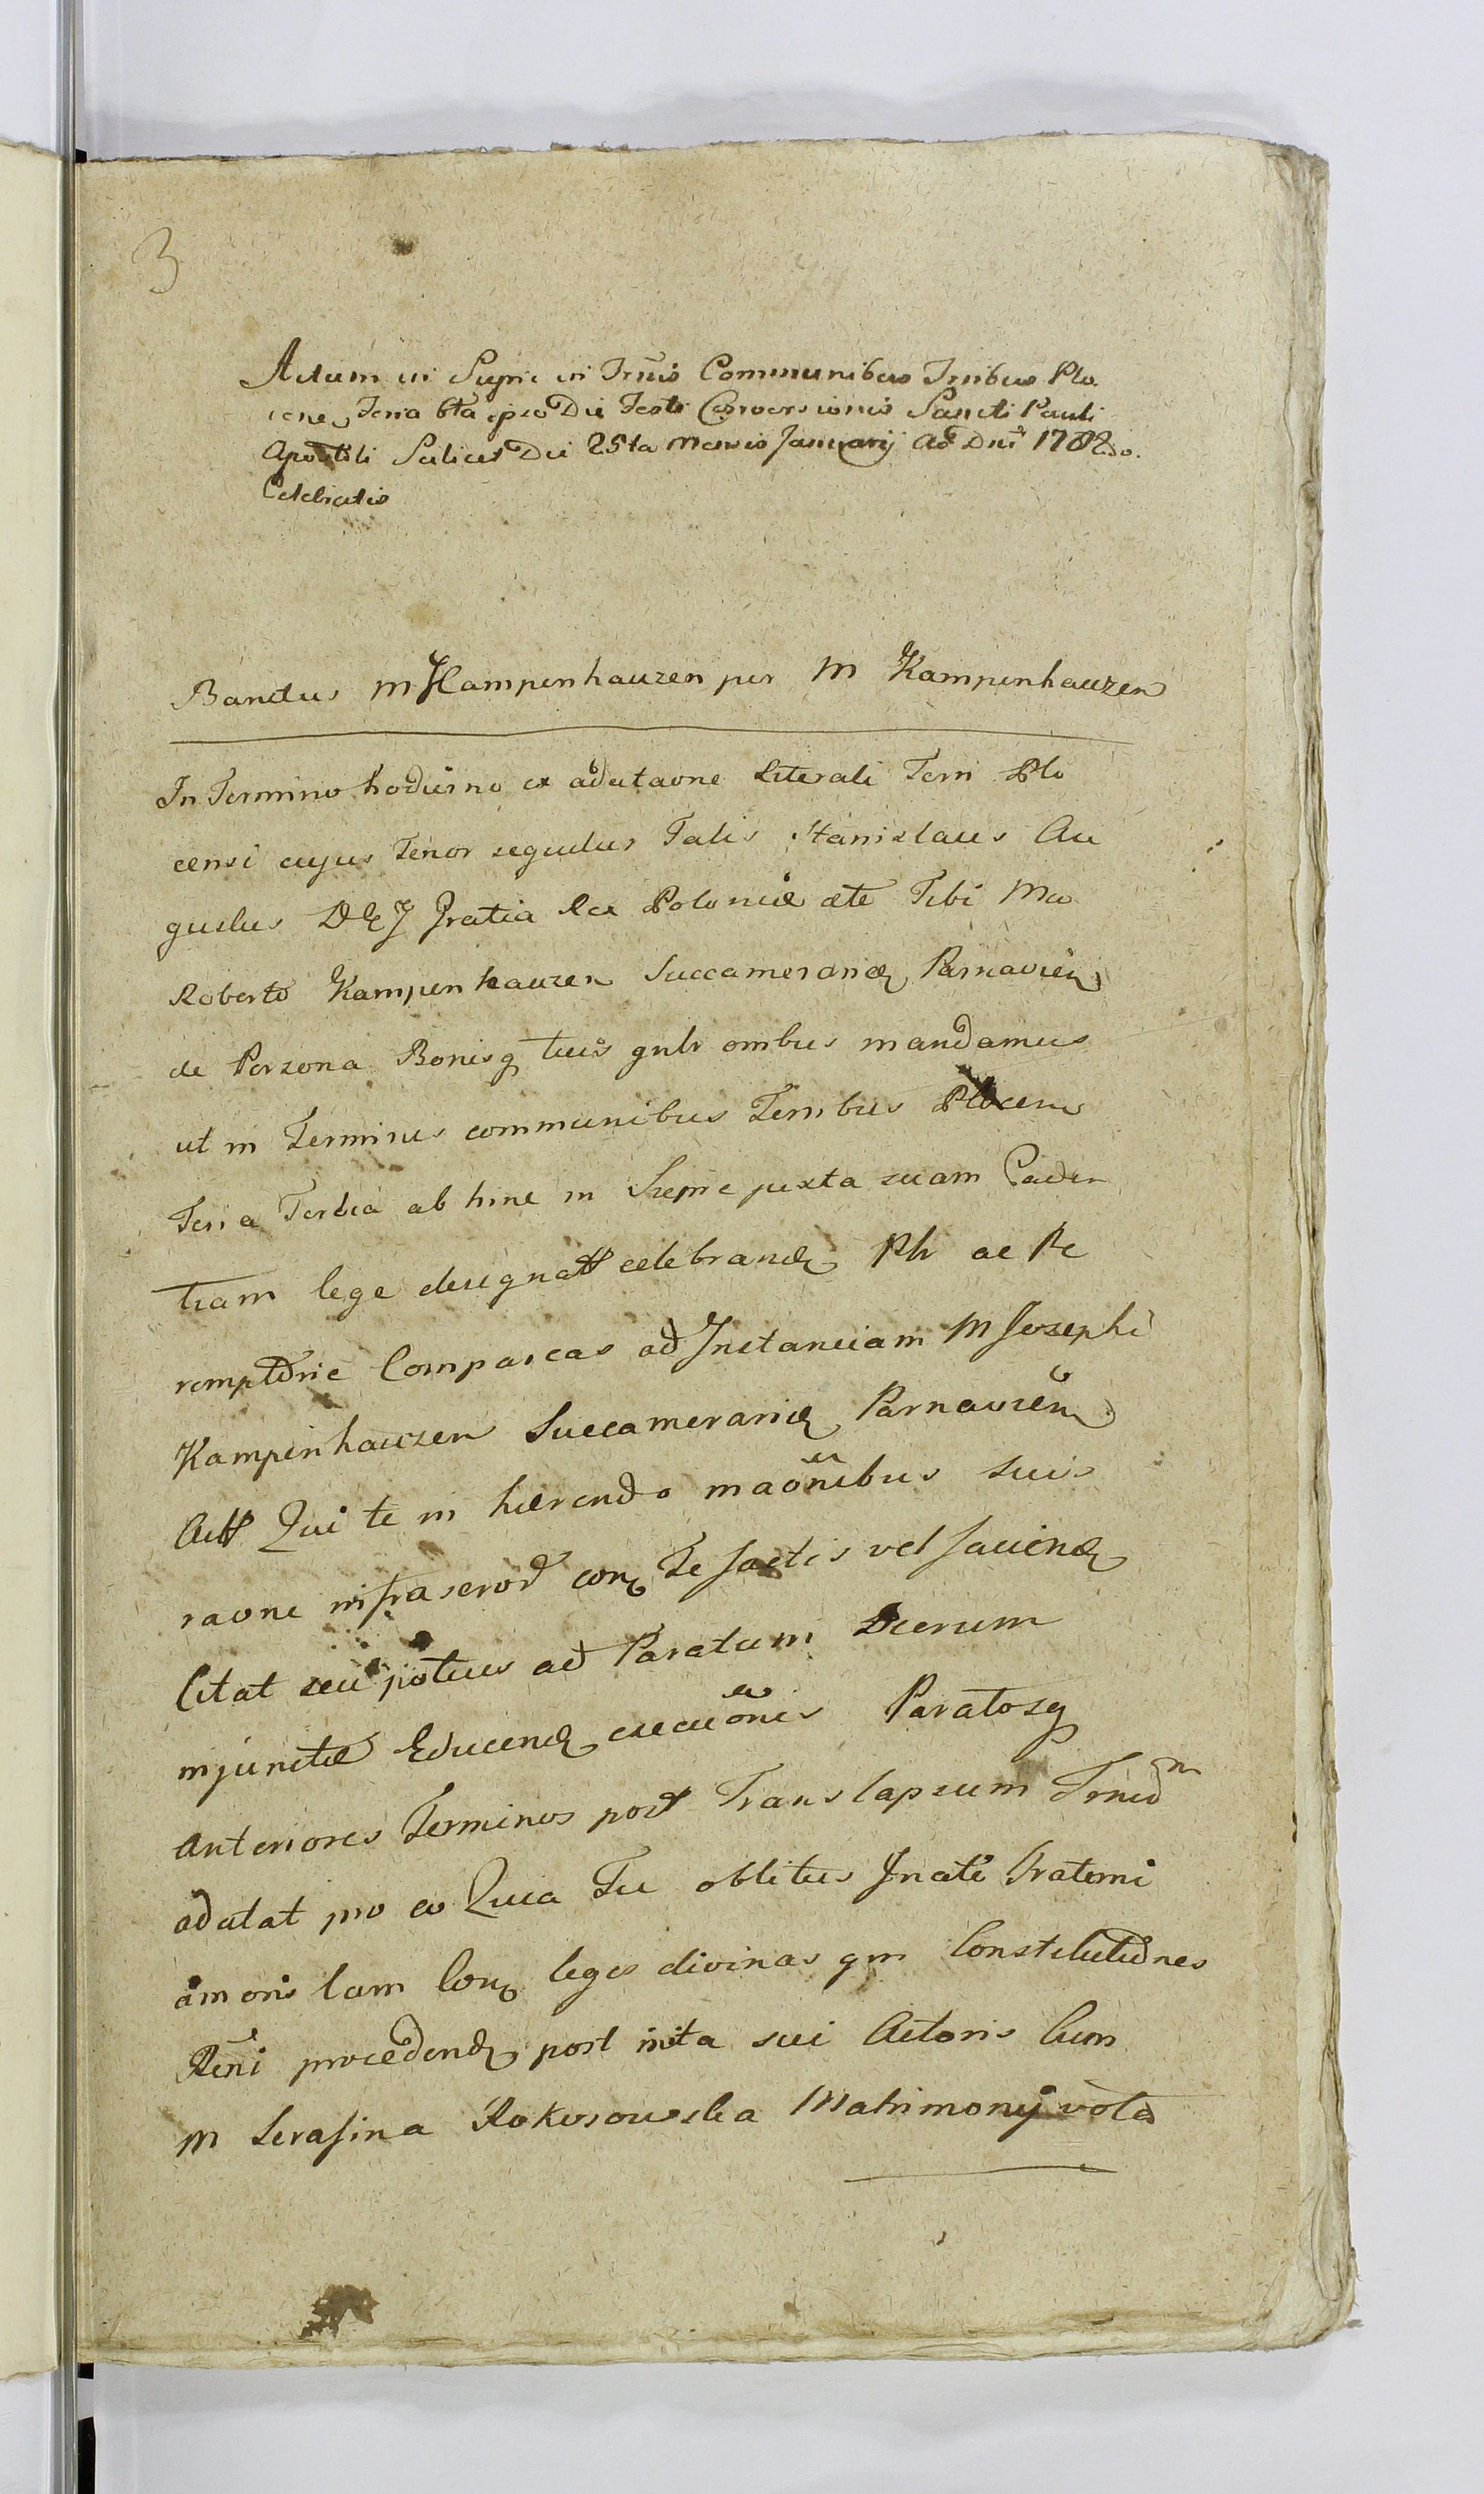 3
Actum in Sepni in Trnis Communibus Trribus Plo
cen, Feria 6ta ipso Die Festi Conversionis Sancti Pauli
Apostoli Scilicet Die 25ta Mensis Januarij Aõ Dni 1782do.
Celebratis
Banitus M Kampenhauzen per M Kampenhauzen
In Termino hodierno ex adcitaone Literali Terri Plo
censi cujus Tenor sequitur Talis Stanislaus Au
gustus DEJ Gratia Rex Poloniæ ete Tibi Mco
Roberto Kampenhauzen Succamerarid Parnavien
de Persona Bonisq tuis gnlr ombus mandamus
ut in Terminis communibus Terribus Plocens
Feria Tertia ab hinc in Szepnie juxta suam Caden
tiam lege designatt celebrand Plr ac Pe
remptorie Compareas ad Instanciam M Josephi
Kampenhauzen Succamerarid Parnavien
Actt Qui te in hærendo maonibus suis
raone infrascrod con Te factis vel faciend
Citat seu potius ad Paratum Rerum
injunctæ Educend execuonis Paratosq
Anteriores Terminos post Translapsum Trnid
adcitat pro eo Quia Tu oblitus Jnati Fraterni
amoris tam Con leges divinas qm Constitutiones
Rnni procedend post inita sui Actoris Cum
M Serafina Rokosowska Matrimonij vota